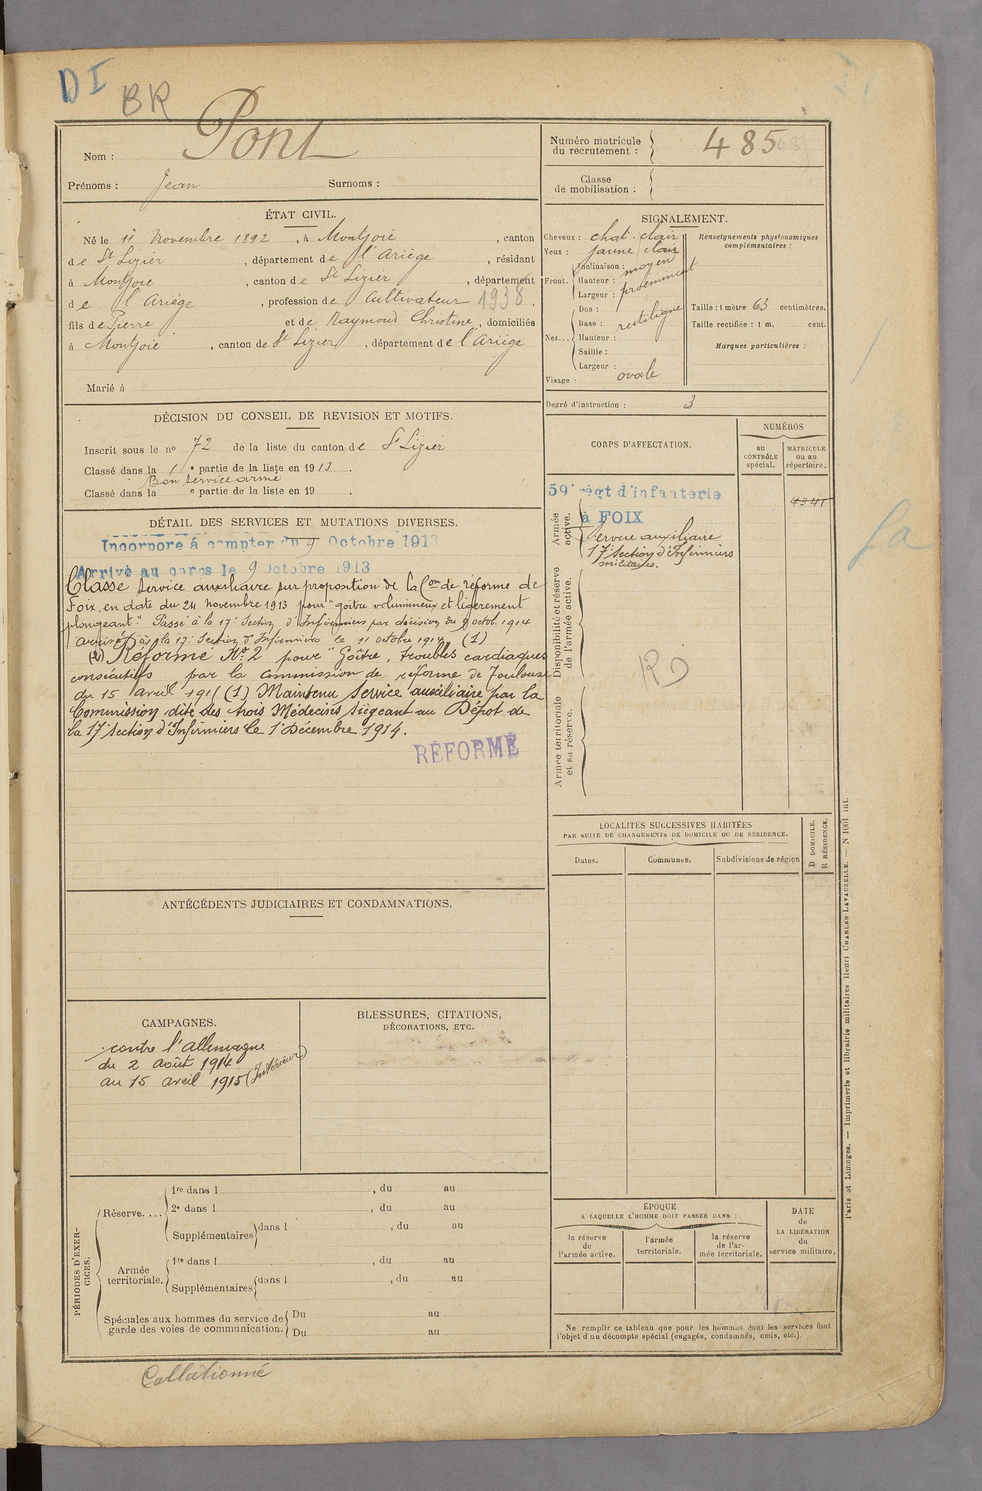 DI
BR
Nom : Pont
Prénoms : Jean Surnoms :
Numéro matricule du recrutement : 485
Classe de mobilisation :
ÉTAT CIVIL.
Né le 11 Novembre 1892, à Montjoie, canton
de St Lizier, département de l'Ariège, résidant
à Montjoie, canton de St Lizier, département
de l'Ariège, profession de Cultivateur 1938.
fils de Pierre et de Raymond Christine, domiciliés
à Montjoie, canton de St Lizier, département de l'Ariège
Marié à
SIGNALEMENT.
Cheveux : chat. clair
Yeux : jaune clair
Front. Inclinaison : moyen
Hauteur :
Largeur : proéminent
Nez... Dos :
Base : rectiligne
Hauteur :
Saillie :
Largeur :
Visage : ovale
Renseignements physionomiques complémentaires :
Taille : 1 mètre 63 centimètres.
Taille rectifiée : 1 m. cent.
Marques particulières :
Degré d'instruction : 3
DÉCISION DU CONSEIL DE REVISION ET MOTIFS.
Inscrit sous le no 72 de la liste du canton de St Lizier
Classé dans la 1e partie de la liste en 1913.
Bon service armé
Classé dans la e partie de la liste en 19 .
DÉTAIL DES SERVICES ET MUTATIONS DIVERSES.
Incorporé à compter du 9 Octobre 1913
Arrivé au corps le 9 Octobre 1913
Classé service auxiliaire sur proposition de la Con de réforme de
Foix, en date du 24 novembre 1913 pour "goitre volumineux et légèrement
plongeant". Passé à la 17e Section d'Infirmiers par décision du 9 octob. 1914
arrivé à la 17e Section d'Infirmiers le 11 octobre 1914 (1)
Réformé No 2 pour "Goître, troubles cardiaques
consécutifs par la commission de réforme de Toulouse
du 15 avril 191 (1) Maintenu Service auxiliaire par la
Commission dite des trois Médecins siégeant au Dépôt de
la 17e Section d'Infirmiers le 1er Décembre 1914.
RÉFORMÉ
CORPS D'AFFECTATION.
NUMÉROS
au CONTRÔLE spécial.
MATRICULE ou au répertoire.
Armée active.
59e régt d'infanterie
à FOIX
4341
Service auxiliaire
17e Section d'Infirmiers
militaires.
Disponibilité et réserve de l'armée active.
RD
Armée territoriale et sa réserve.
LOCALITÉS SUCCESSIVES HABITÉES
PAR SUITE DE CHANGEMENTS DE DOMICILE OU DE RÉSIDENCE.
Dates. Communes. Subdivisions de région D DOMICILE. R RÉSIDENCE.
ANTÉCÉDENTS JUDICIAIRES ET CONDAMNATIONS.
CAMPAGNES.
contre l'Allemagne
du 2 Août 1914
au 15 avril 1915 (Intérieur)
BLESSURES, CITATIONS,
DÉCORATIONS, ETC.
PÉRIODES D'EXERCICES.
Réserve.... 1re dans l , du au
2e dans l , du au
Supplémentaires dans l , du au
Armée territoriale. 1re dans l , du au
Supplémentaires dans l , du au
Spéciales aux hommes du service de garde des voies de communication. Du au
Du au
ÉPOQUE
A LAQUELLE L'HOMME DOIT PASSER DANS :
la réserve de l'armée active.
l'armée territoriale.
la réserve de l'armée territoriale.
DATE DE LA LIBÉRATION du service militaire.
Ne remplir ce tableau que pour les hommes dont les services font
l'objet d'un décompte spécial (engagés, condamnés, omis, etc.)
Paris et Limoges. — Imprimerie et librairie militaires Henri CHARLES-LAVAUZELLE. — N 1001 int.
Collationné